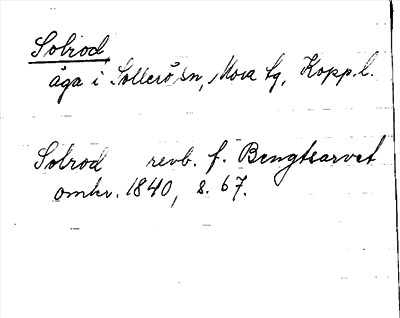 Solrod,
åga i Sollerö sn, Mora tg, Kopp. l.
Solrod revb. f. Bengtsarvet
omkr. 1840, s. 67.